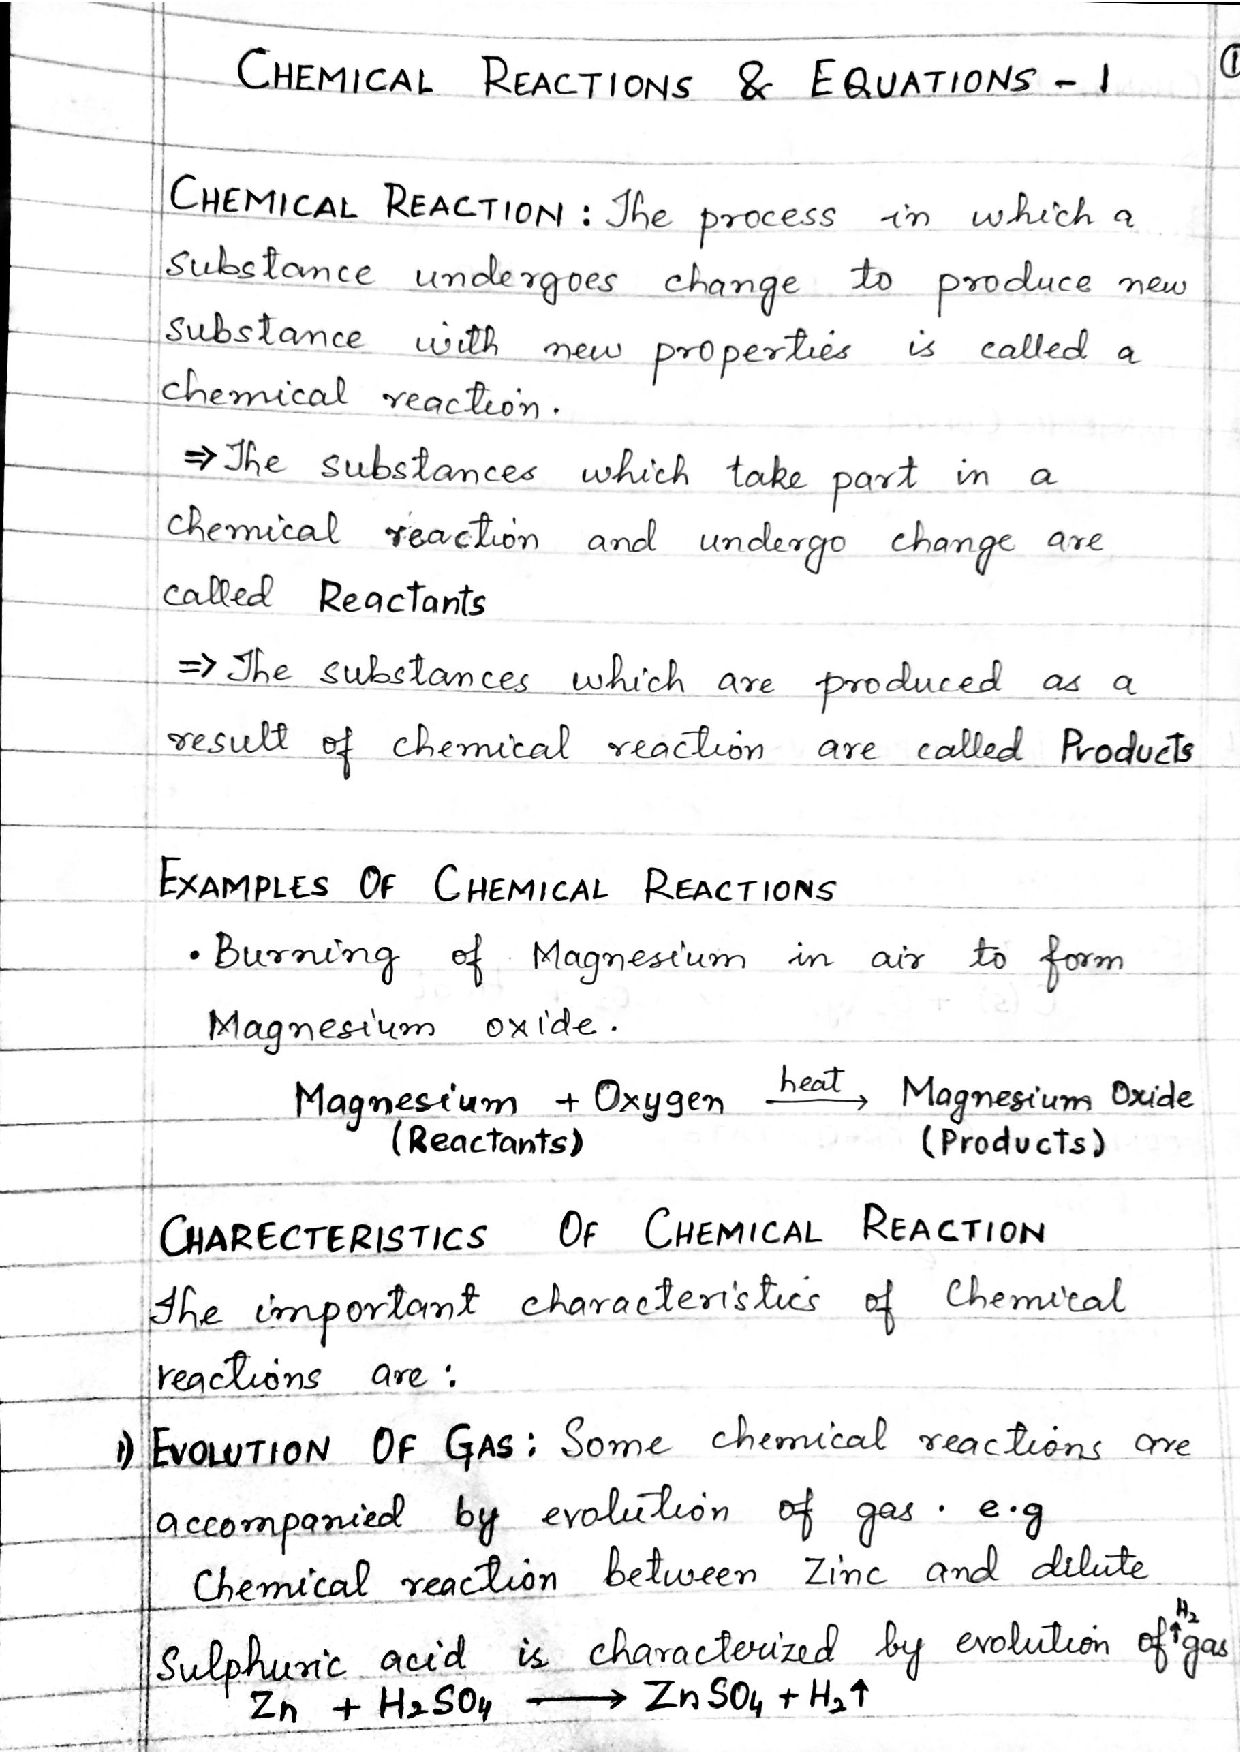 ①
CHEMICAL REACTIONS & EQUATIONS - 1
CHEMICAL REACTION : The process in which a
substance undergoes change to produce new
substance with new properties is called a
chemical reaction.
⇒ The substances which take part in a
chemical reaction and undergo change are
called Reactants
⇒ The substances which are produced as a
result of chemical reaction are called Products
EXAMPLES OF CHEMICAL REACTIONS
• Burning of Magnesium in air to form
Magnesium oxide.
Magnesium + Oxygen heat→ Magnesium Oxide
(Reactants) (Products)
CHARECTERISTICS OF CHEMICAL REACTION
The important characteristics of Chemical
reactions are :
1) EVOLUTION OF GAS : Some chemical reactions are
accompanied by evolution of gas . e.g
Chemical reaction between Zinc and dilute
H₂
Sulphuric acid is characterized by evolution of ↑ gas
Zn + H₂SO₄ → ZnSO₄ + H₂↑